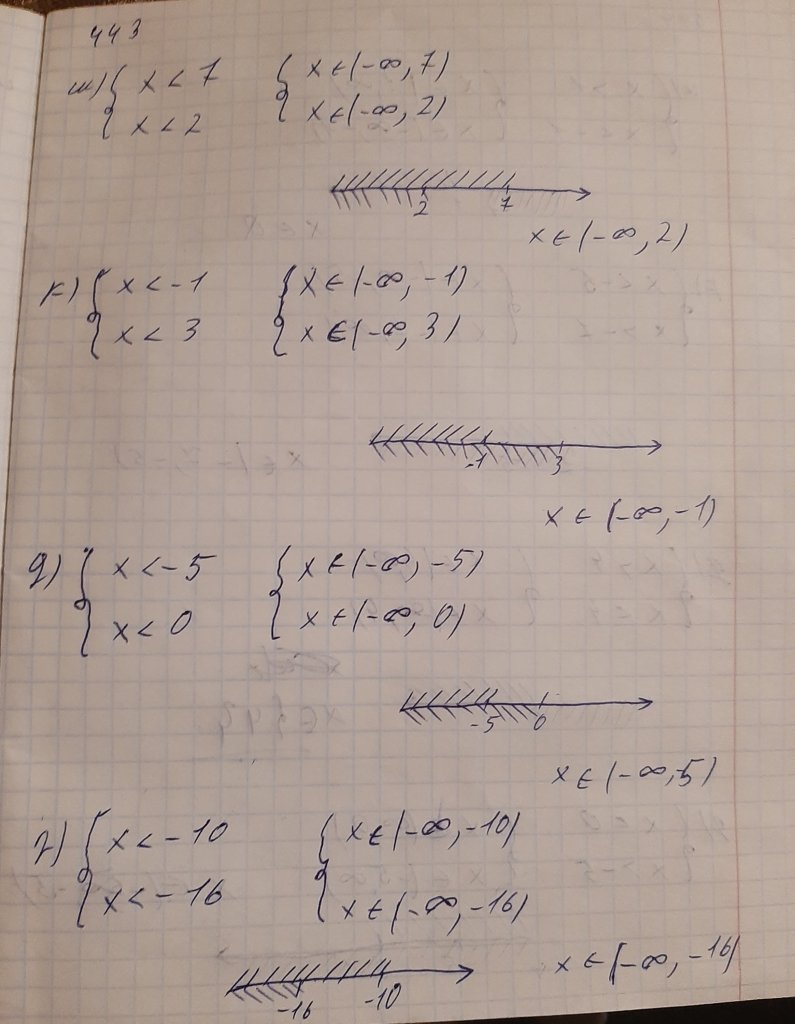 443
ա) { x < 7 { x ∈ (-∞, 7)
x < 2 x ∈ (-∞, 2)
2 7
x ∈ (-∞, 2)
բ) { x < -1 { x ∈ (-∞, -1)
x < 3 x ∈ (-∞, 3)
-1 3
x ∈ (-∞, -1)
գ) { x < -5 { x ∈ (-∞, -5)
x < 0 x ∈ (-∞, 0)
-5 0
x ∈ (-∞, 5)
դ) { x < -10 { x ∈ (-∞, -10)
x < -16 x ∈ (-∞, -16)
-16 -10
x ∈ (-∞, -16)